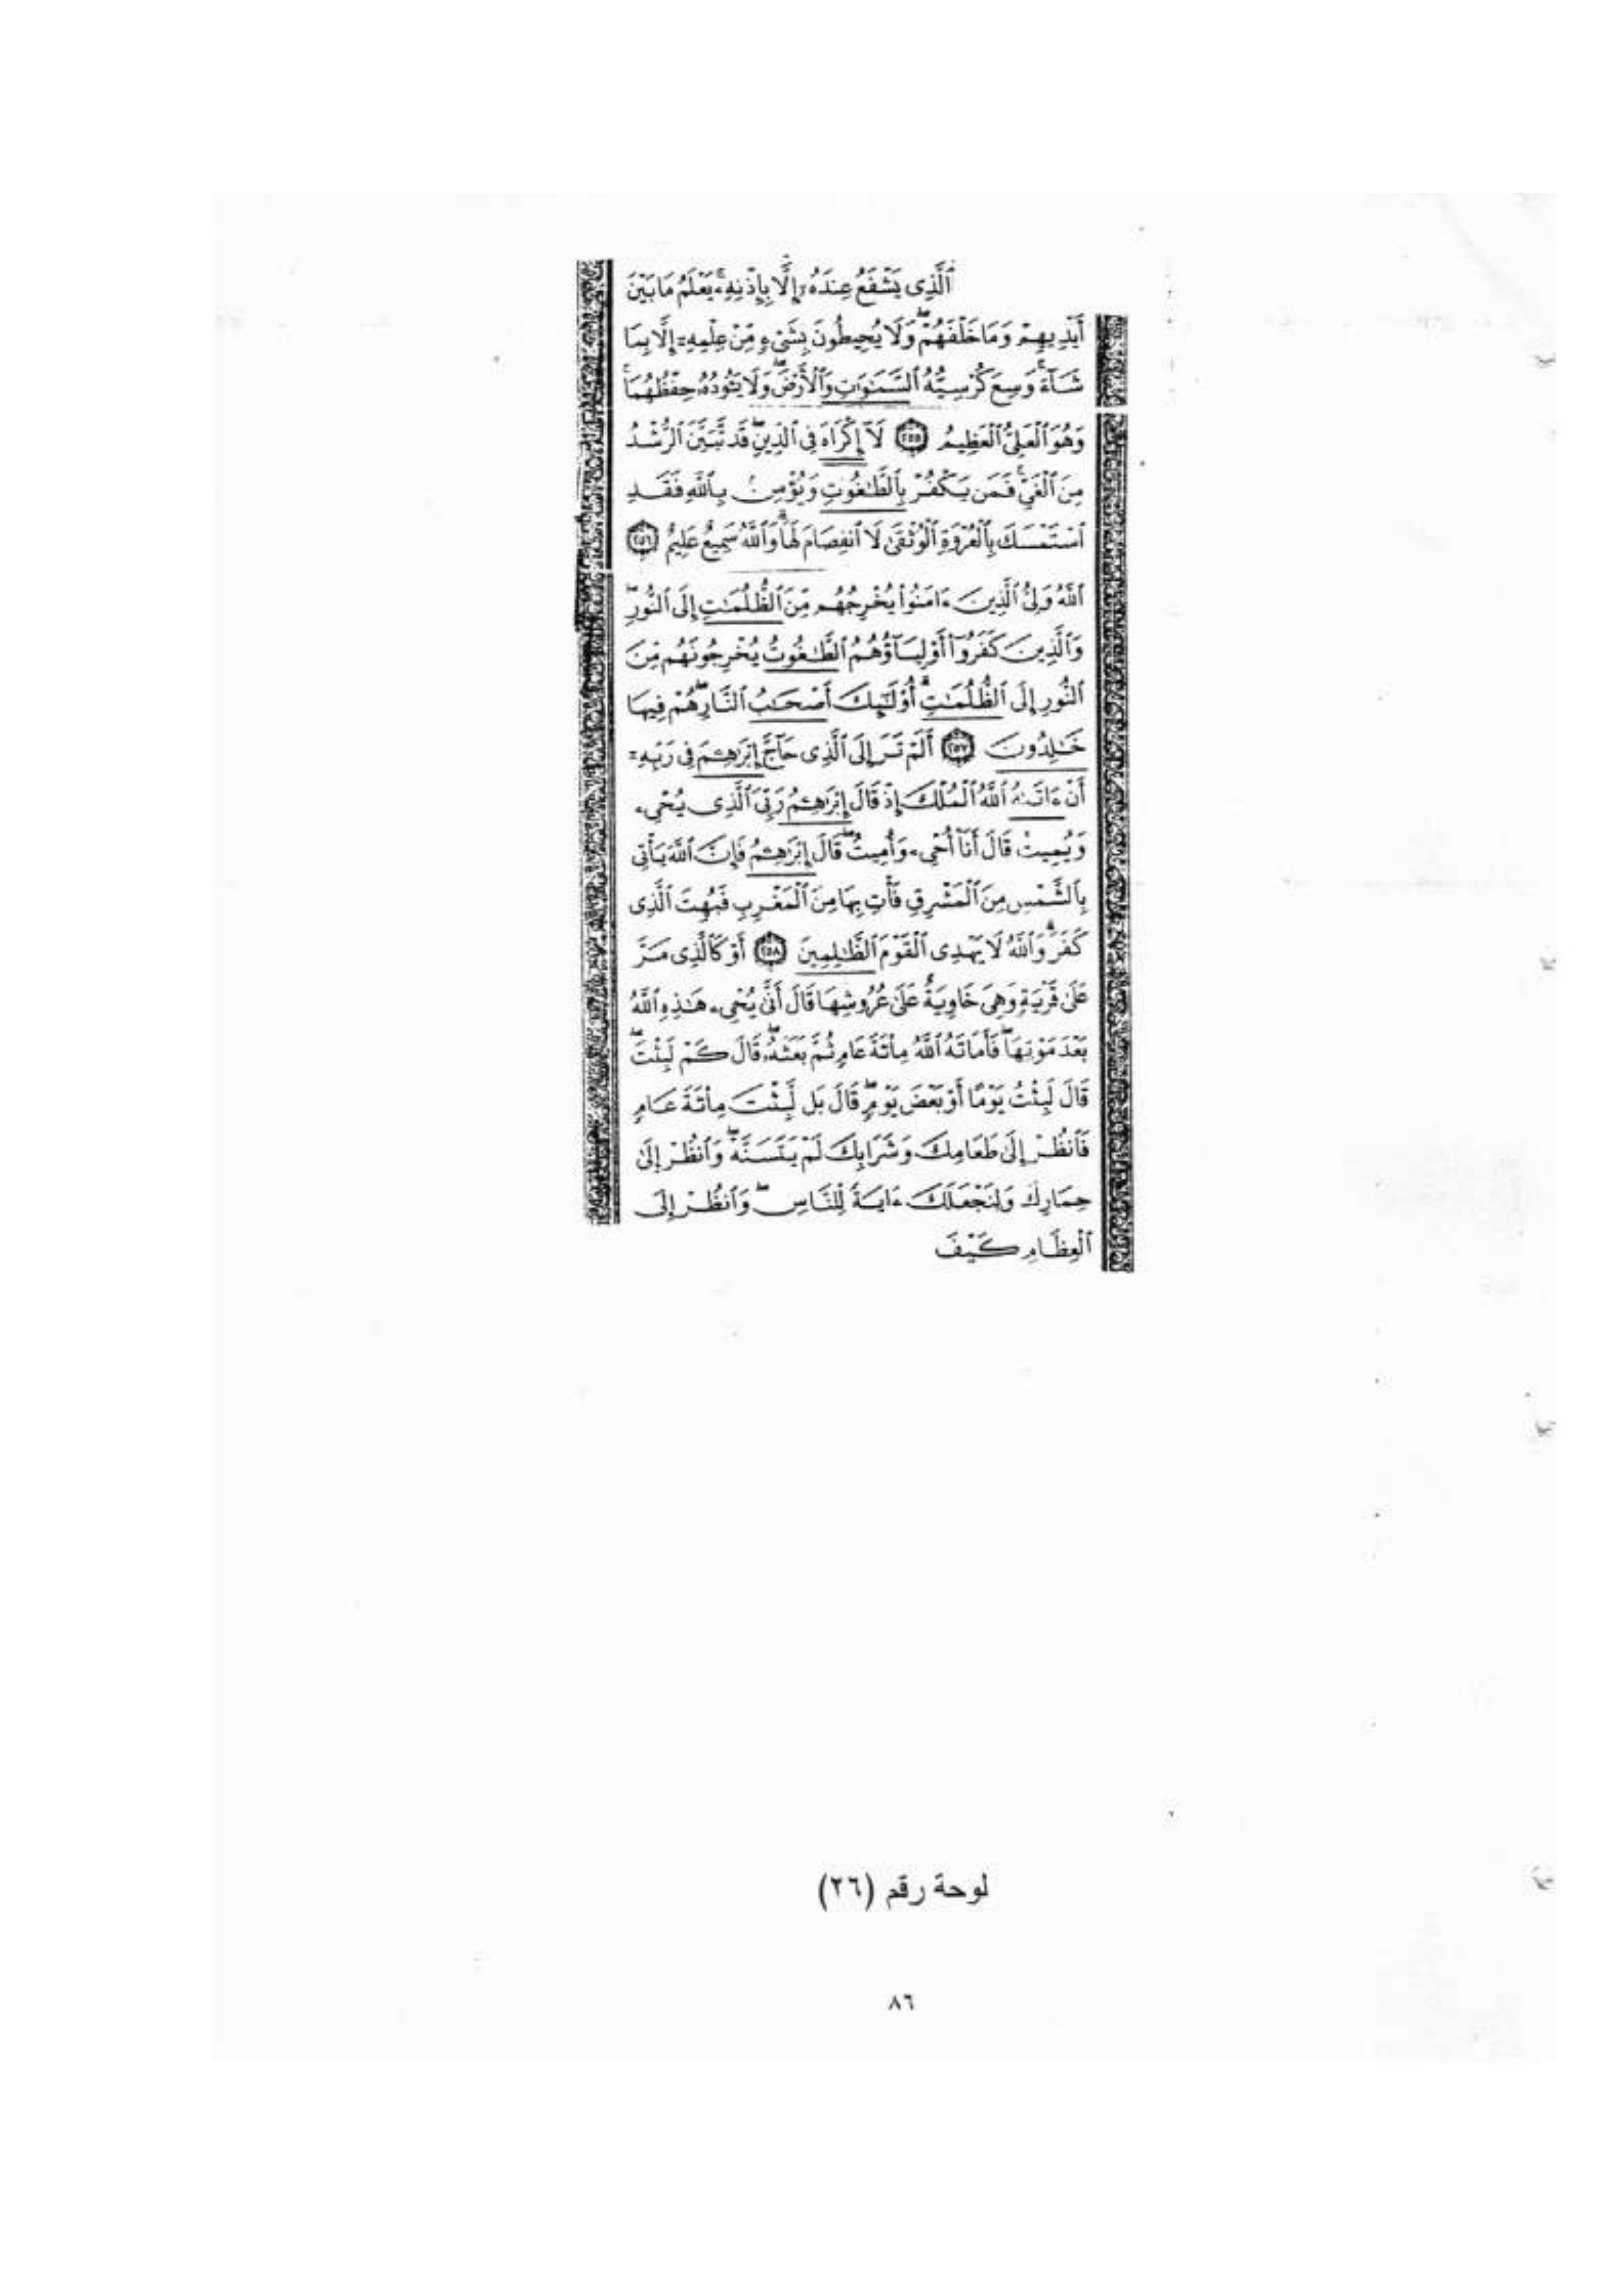 ٱلَّذِى يَشْفَعُ عِندَهُۥٓ إِلَّا بِإِذْنِهِۦ ۚ يَعْلَمُ مَا بَيْنَ
أَيْدِيهِمْ وَمَا خَلْفَهُمْ ۖ وَلَا يُحِيطُونَ بِشَىْءٍ مِّنْ عِلْمِهِۦٓ إِلَّا بِمَا
شَآءَ ۚ وَسِعَ كُرْسِيُّهُ ٱلسَّمَٰوَٰتِ وَٱلْأَرْضَ ۖ وَلَا يَـُٔودُهُۥ حِفْظُهُمَا ۚ
وَهُوَ ٱلْعَلِىُّ ٱلْعَظِيمُ ﴿٢٥٥﴾ لَآ إِكْرَاهَ فِى ٱلدِّينِ ۖ قَد تَّبَيَّنَ ٱلرُّشْدُ
مِنَ ٱلْغَىِّ ۚ فَمَن يَكْفُرْ بِٱلطَّٰغُوتِ وَيُؤْمِنۢ بِٱللَّهِ فَقَدِ
ٱسْتَمْسَكَ بِٱلْعُرْوَةِ ٱلْوُثْقَىٰ لَا ٱنفِصَامَ لَهَا ۗ وَٱللَّهُ سَمِيعٌ عَلِيمٌ ﴿٢٥٦﴾
ٱللَّهُ وَلِىُّ ٱلَّذِينَ ءَامَنُوا۟ يُخْرِجُهُم مِّنَ ٱلظُّلُمَٰتِ إِلَى ٱلنُّورِ ۖ
وَٱلَّذِينَ كَفَرُوٓا۟ أَوْلِيَآؤُهُمُ ٱلطَّٰغُوتُ يُخْرِجُونَهُم مِّنَ
ٱلنُّورِ إِلَى ٱلظُّلُمَٰتِ ۗ أُو۟لَٰٓئِكَ أَصْحَٰبُ ٱلنَّارِ ۖ هُمْ فِيهَا
خَٰلِدُونَ ﴿٢٥٧﴾ أَلَمْ تَرَ إِلَى ٱلَّذِى حَآجَّ إِبْرَٰهِـۧمَ فِى رَبِّهِۦٓ
أَنْ ءَاتَىٰهُ ٱللَّهُ ٱلْمُلْكَ إِذْ قَالَ إِبْرَٰهِـۧمُ رَبِّىَ ٱلَّذِى يُحْىِۦ
وَيُمِيتُ قَالَ أَنَا۠ أُحْىِۦ وَأُمِيتُ ۖ قَالَ إِبْرَٰهِـۧمُ فَإِنَّ ٱللَّهَ يَأْتِى
بِٱلشَّمْسِ مِنَ ٱلْمَشْرِقِ فَأْتِ بِهَا مِنَ ٱلْمَغْرِبِ فَبُهِتَ ٱلَّذِى
كَفَرَ ۗ وَٱللَّهُ لَا يَهْدِى ٱلْقَوْمَ ٱلظَّٰلِمِينَ ﴿٢٥٨﴾ أَوْ كَٱلَّذِى مَرَّ
عَلَىٰ قَرْيَةٍ وَهِىَ خَاوِيَةٌ عَلَىٰ عُرُوشِهَا قَالَ أَنَّىٰ يُحْىِۦ هَٰذِهِ ٱللَّهُ
بَعْدَ مَوْتِهَا ۖ فَأَمَاتَهُ ٱللَّهُ مِا۟ئَةَ عَامٍ ثُمَّ بَعَثَهُۥ ۖ قَالَ كَمْ لَبِثْتَ ۖ
قَالَ لَبِثْتُ يَوْمًا أَوْ بَعْضَ يَوْمٍ ۖ قَالَ بَل لَّبِثْتَ مِا۟ئَةَ عَامٍ
فَٱنظُرْ إِلَىٰ طَعَامِكَ وَشَرَابِكَ لَمْ يَتَسَنَّهْ ۖ وَٱنظُرْ إِلَىٰ
حِمَارِكَ وَلِنَجْعَلَكَ ءَايَةً لِّلنَّاسِ ۖ وَٱنظُرْ إِلَى
ٱلْعِظَامِ كَيْفَ
لوحة رقم (٢٦)
٨٦